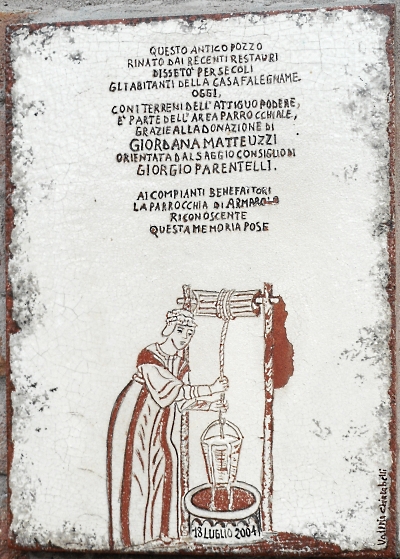 QUESTO ANTICO POZZO
RINATO DAI RECENTI RESTAURI
DISSETO' PER SECOLI
GLI ABITANTI DELLA CASA FALEGNAME.
OGGI,
CON I TERRENI DELL'ATTIGUO PODERE,
E' PARTE DELL'AREA PARROCCHIALE,
GRAZIE ALLA DONAZIONE DI
GIORDANA MATTEUZZI
ORIENTATA DAL SAGGIO CONSIGLIO DI
GIORGIO PARENTELLI.
AI COMPIANTI BENEFATTORI
LA PARROCCHIA DI ARMAROLO
RICONOSCENTE
QUESTA MEMORIA POSE
18 LUGLIO 2004